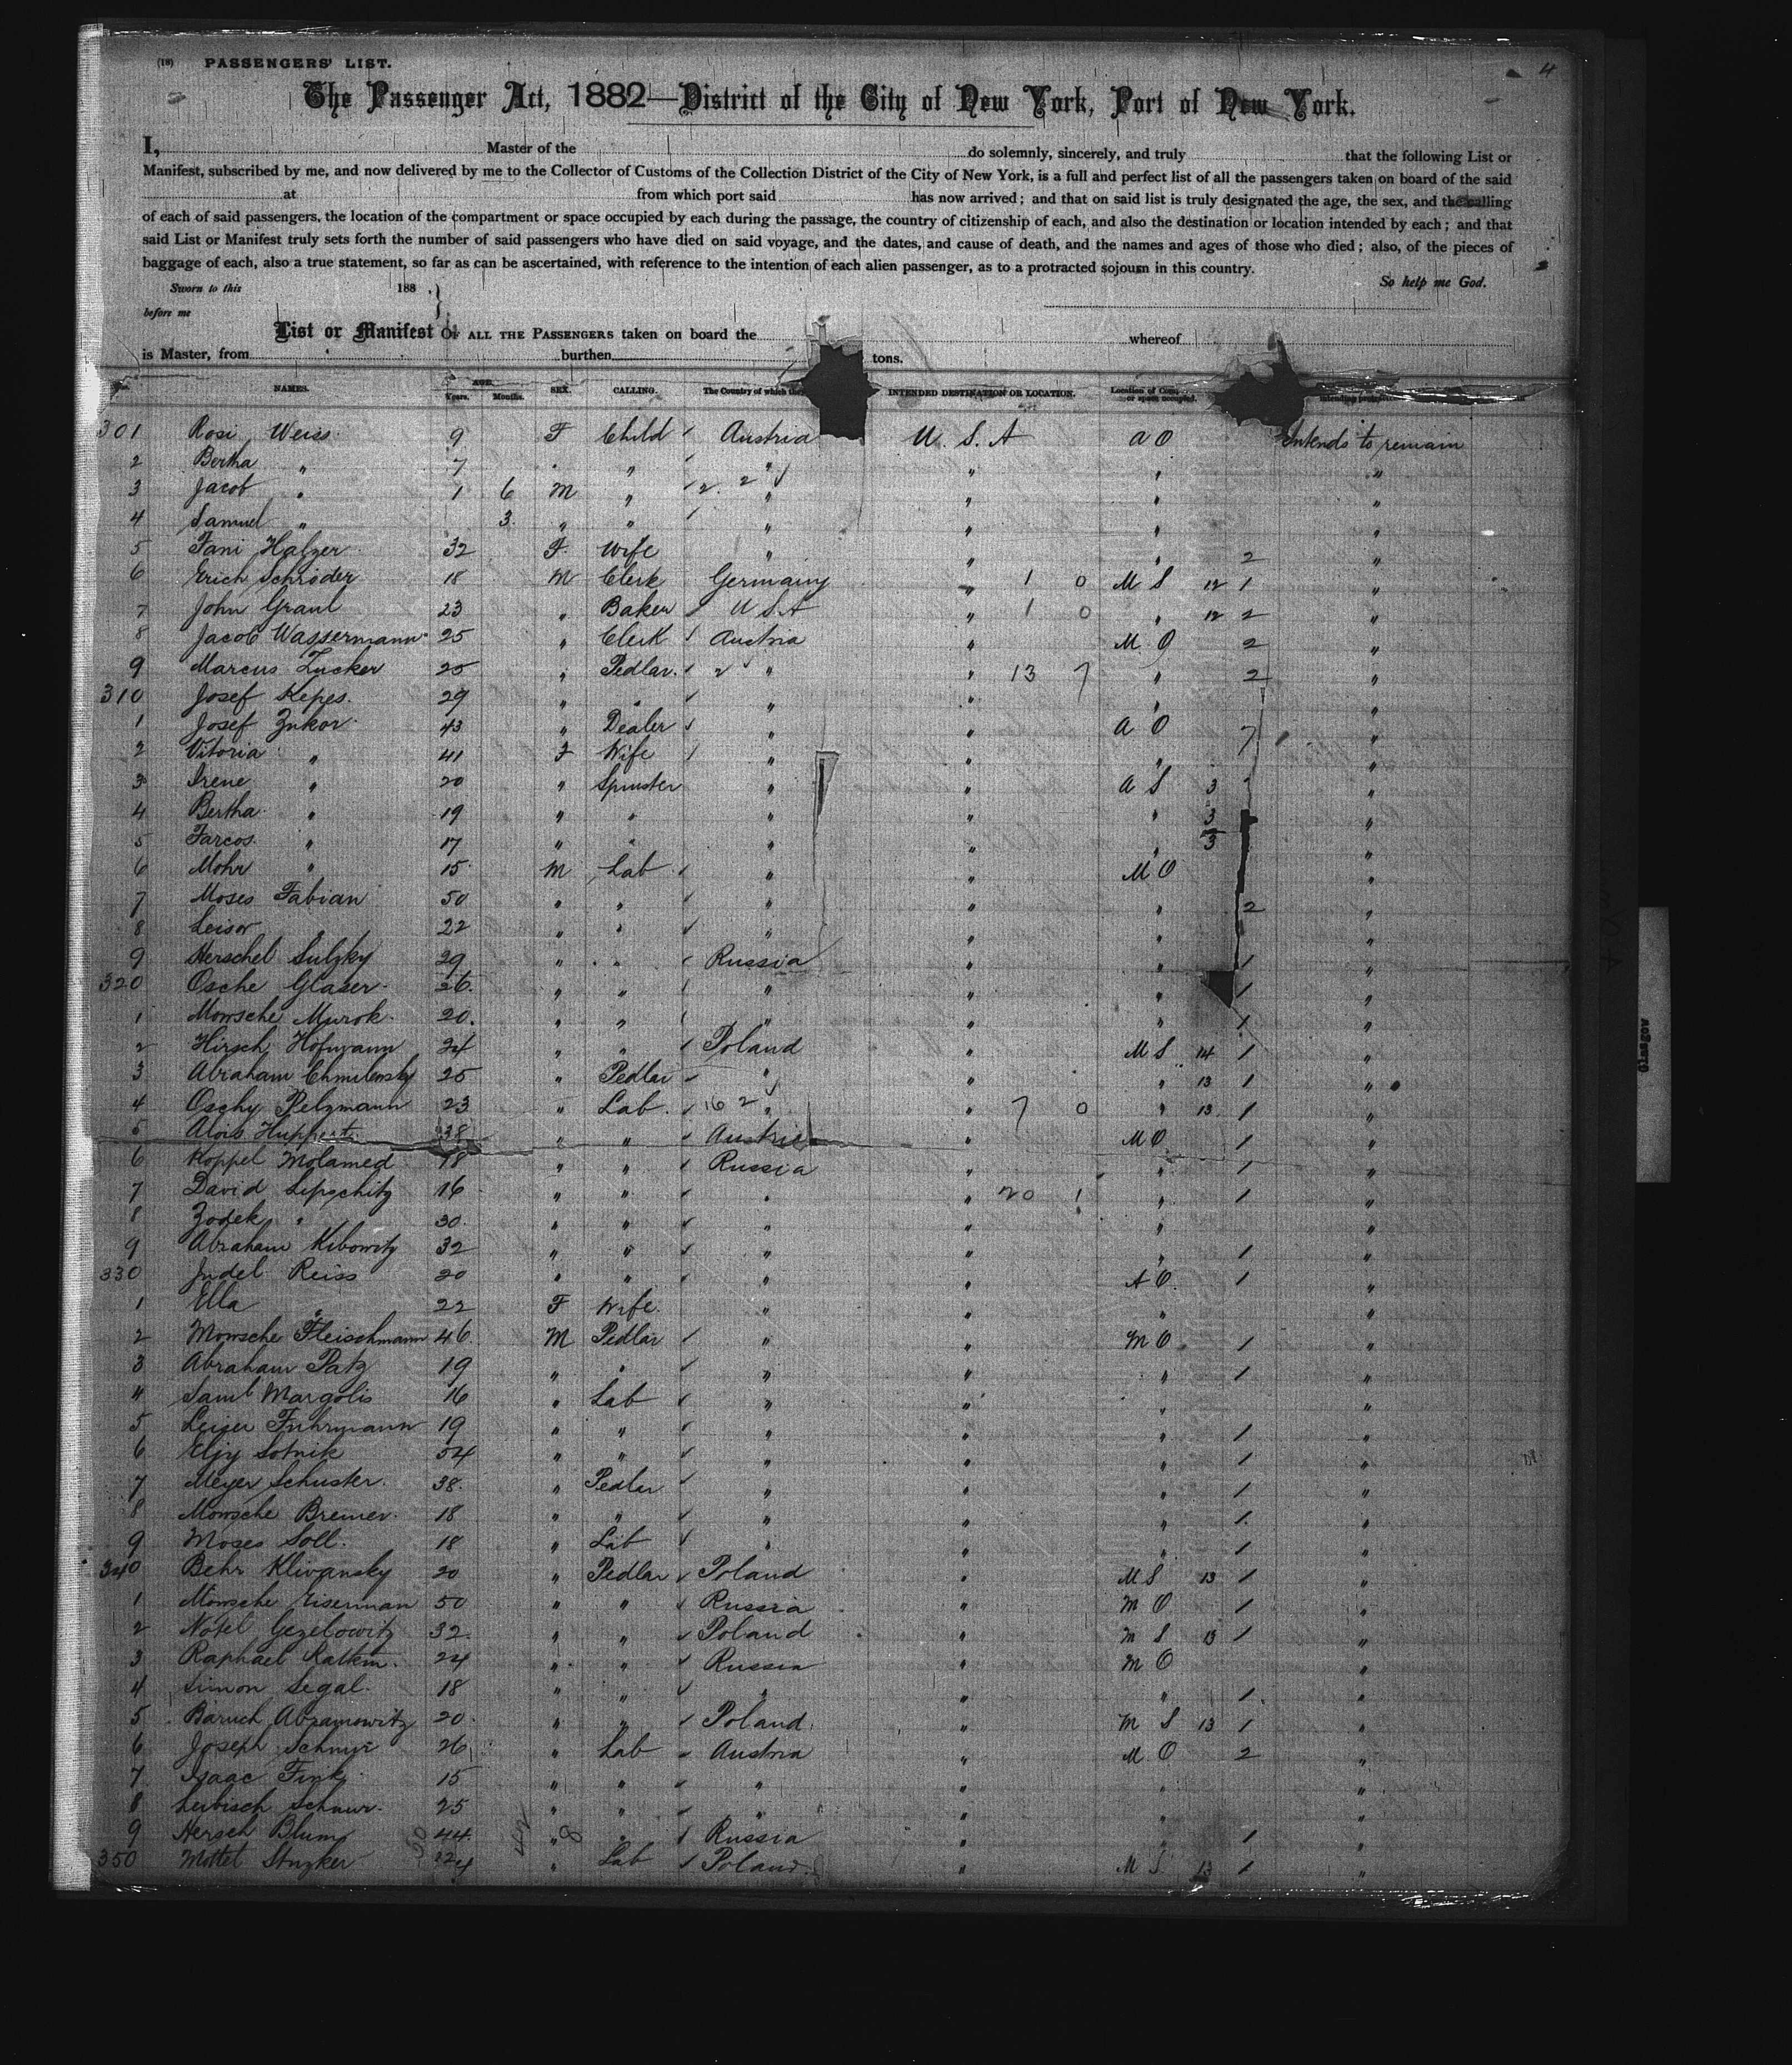 (18) PASSENGERS' LIST.
4
The Passenger Act, 1882—District of the City of New York, Port of New York.
I, Master of the do solemnly, sincerely, and truly that the following List or
Manifest, subscribed by me, and now delivered by me to the Collector of Customs of the Collection District of the City of New York, is a full and perfect list of all the passengers taken on board of the said
at from which port said has now arrived; and that on said list is truly designated the age, the sex, and the calling
of each of said passengers, the location of the compartment or space occupied by each during the passage, the country of citizenship of each, and also the destination or location intended by each; and that
said List or Manifest truly sets forth the number of said passengers who have died on said voyage, and the dates, and cause of death, and the names and ages of those who died; also, of the pieces of
baggage of each, also a true statement, so far as can be ascertained, with reference to the intention of each alien passenger, as to a protracted sojourn in this country.
Sworn to this 188 . So help me God.
before me
List or Manifest OF ALL THE PASSENGERS taken on board the whereof
is Master, from burthen tons.
NAMES. AGE. Years. Months. SEX. CALLING. The Country of which they INTENDED DESTINATION OR LOCATION. Location of or space occupied.
301 Rosi Weiss 9 F Child Austria U.S.A A O Intends to remain
2 Bertha " 7 " " " " " "
3 Jacob " 1 6 M " 2. 2 " " " "
4 Samuel " 3 " " " " " "
5 Fani Halzer 32 F Wife " " " 2 "
6 Erich Schröder 18 M Clerk Germany " 1 0 M S 12 1 "
7 John Graul 23 " Baker U S A " 1 0 " 12 2 "
8 Jacob Wassermann 25 " Clerk Austria " M O 2 "
9 Marcus Zucker 25 " Pedlar 2 " " 13 7 " 2 "
310 Josef Kepes 29 " " " " " "
1 Josef Zukor 43 " Dealer " " A O 7 "
2 Vitoria " 41 F Wife " " " "
3 Irene " 20 " Spinster " " A S 3 "
4 Bertha " 19 " " " " " 3 "
5 Farcos " 17 " " " " " 3 "
6 Mohr " 15 M Lab " " M O "
7 Moses Fabian 50 " " " " " 2 "
8 Leisor " 22 " " " " " "
9 Herschel Sulzky 29 " " Russia " " 1 "
320 Osche Glaser 26 " " " " " 1 "
1 Mowsche Murok 20 " " " " " 1 "
2 Hirsch Hofmann 24 " " Poland " M S 14 1 "
3 Abraham Chmilewsky 25 " Pedlar " " " 13 1 "
4 Oschy Pelzmann 23 " Lab 16 2 " " 7 0 " 13 1 "
5 Alois Huppert 38 " " Austria " M O 1 "
6 Koppel Molamed 18 " " Russia " " 1 "
7 David Lipschitz 16 " " " " 20 1 " 1 "
8 Zodek " 30 " " " " " "
9 Abraham Kibowitz 32 " " " " " 1 "
330 Judel Reiss 20 " " " " A O 1 "
1 Ella " 22 F Wife " " " "
2 Mowsche Fleischmann 46 M Pedlar " " M O 1 "
3 Abraham Patz 19 " " " " " 1 "
4 Saml Margolis 16 " Lab " " " "
5 Leijer Fuhrmann 19 " " " " " 1 "
6 Eljy Sotnik 54 " " " " " 1 "
7 Meyer Schuster 38 " Pedlar " " " 1 "
8 Mowsche Bremer 18 " " " " " 1 "
9 Moses Soll 18 " Lab " " " 1 "
340 Behr Klivansky 20 " Pedlar Poland " M S 13 1 "
1 Mowsche Eiserman 50 " " Russia " M O 1 "
2 Notel Gezelowitz 32 " " Poland " M S 13 1 "
3 Raphael 24 " " Russia " M O "
4 Simon Segal 18 " " " " " 1 "
5 Baruch Abramowitz 20 " " Poland " M S 13 1 "
6 Joseph Schnur 26 " Lab Austria " M O 2 "
7 Isaac Fink 15 " " " " " "
8 Leibisch Schnur 25 " " " " " "
9 Hersch Blum 44 " " Russia " " 1 "
350 Mottel 24 " Lab Poland " M S 13 1 "
Glasgow